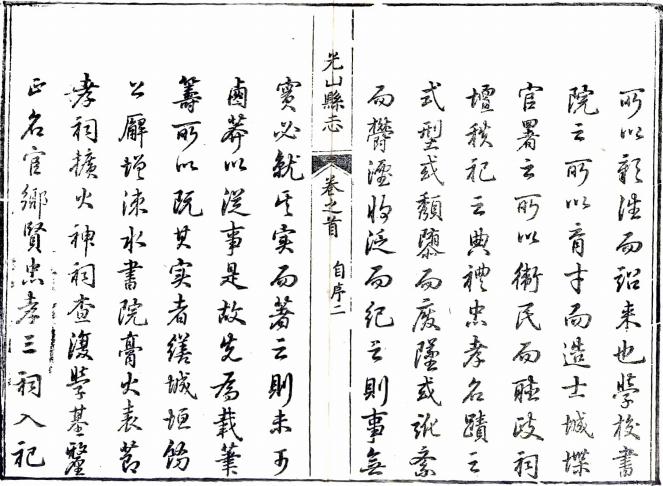 所以彰往而詔来也學校書
院之所以育才而造士城堞
官署之所以衛民而聽政祠
壇秩祀之典禮忠孝名蹟之
式型或頹隳而廢墜或訛紊
而欝湮將泛而紀之則事無
光山縣志
卷之首
自序二
實必就其实而著之則未可
鹵莽以從事是故先為載筆
籌所以既其实者繕城垣飭
公廨增涑水書院膏火表節
孝祠擴火神祠查復學基釐
正名宦鄉賢忠孝三祠入祀